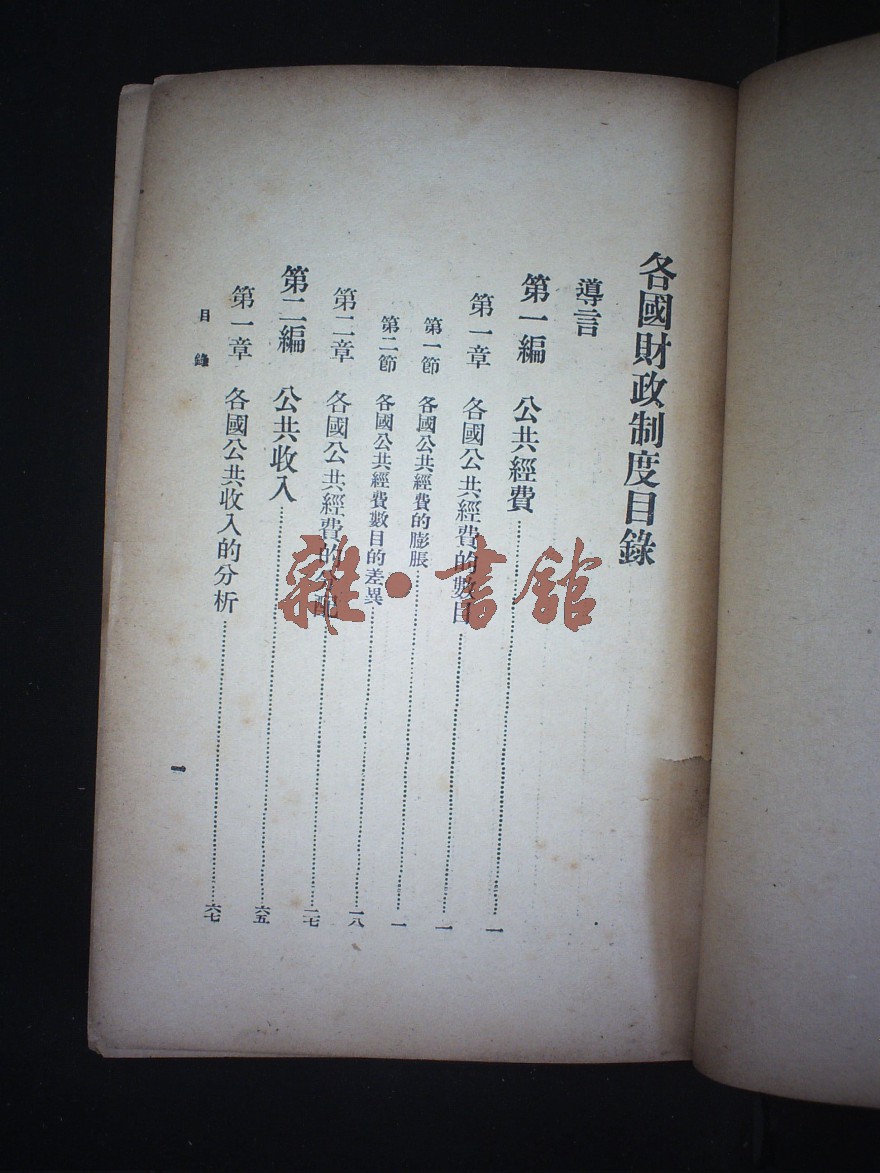 各國財政制度目錄
導言
第一編 公共經費……一
第一章 各國公共經費的數目……一
第一節 各國公共經費的膨脹……一
第二節 各國公共經費數目的差異……一八
第二章 各國公共經費的分配……二七
第二編 公共收入……六五
第一章 各國公共收入的分析……六七
目錄
一
雜·書館